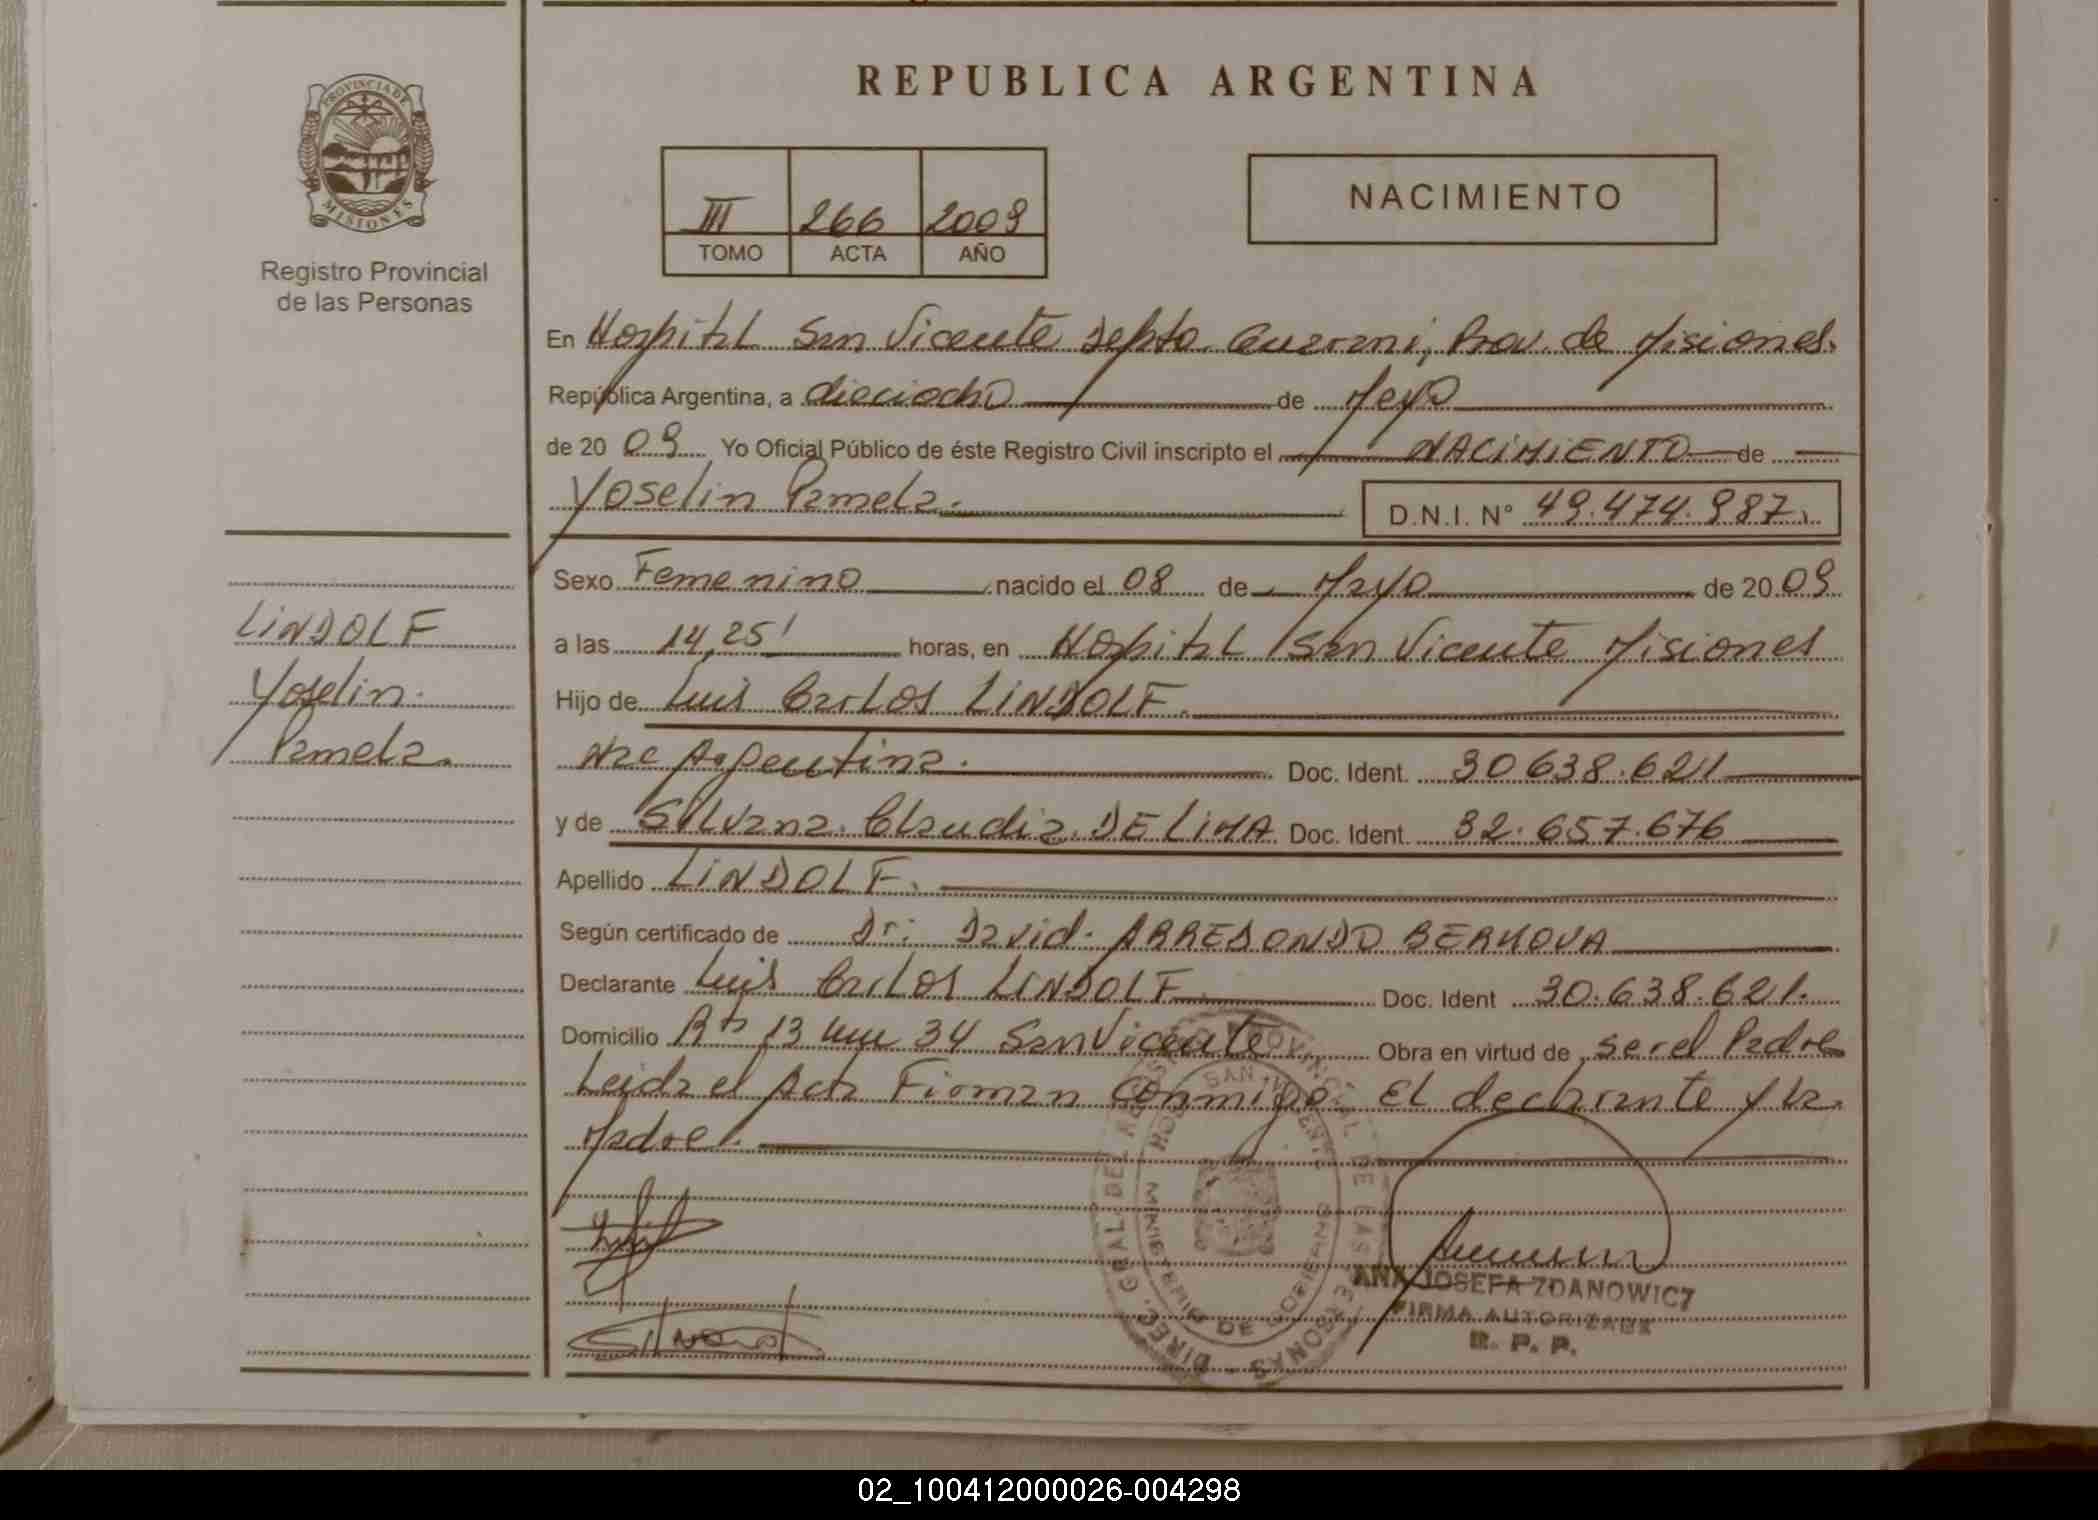 REPUBLICA ARGENTINA
PROVINCIA DE
MISIONES
Registro Provincial
de las Personas
III 266 2009
TOMO ACTA AÑO
NACIMIENTO
En Hospital San Vicente Depto Guarani, Prov. de Misiones.
República Argentina, a dieciocho de Mayo
de 20 09 Yo Oficial Público de éste Registro Civil inscripto el NACIMIENTO de
Yoselin Pamela. D.N.I. N° 49.474.987.
Sexo Femenino nacido el 08 de Mayo de 20 09
a las 14,25' horas, en Hospital San Vicente Misiones
Hijo de Luis Carlos LINDOLF.
Nac Argentina. Doc. Ident. 30638.621
y de Silvana Claudia DE LIMA Doc. Ident. 32.657.676
Apellido LINDOLF.
Según certificado de Dr: David ARREDONDO
Declarante Luis Carlos LINDOLF Doc. Ident 30.638.621.
Domicilio Rta 13 km 34 San Vicente Obra en virtud de ser el Padre
Leida el Acta Firman Conmigo El declarante y la
Madre.
LINDOLF
Yoselin
Pamela.
DIREC. GRAL. DEL REGISTRO PROVINCIAL DE LAS PERSONAS
HOSP. SAN VICENTE
MINISTERIO DE GOBIERNO
ANA JOSEFA ZDANOWICZ
FIRMA AUTORIZADA
R. P. P.
02_100412000026-004298